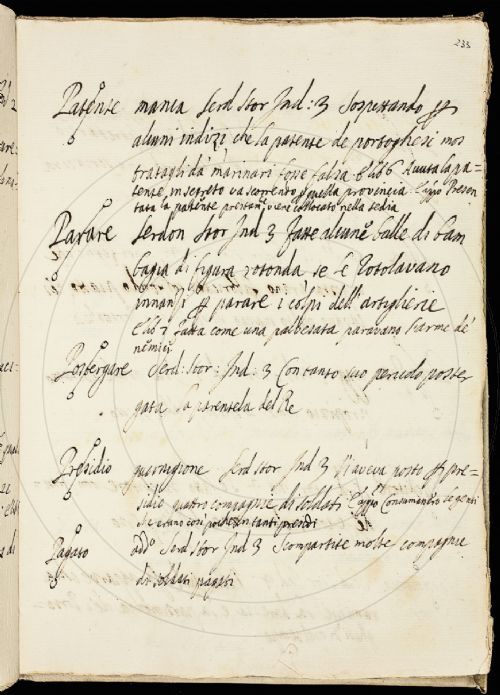 233
Patente manca Serd Stor Ind: 3 Sospettando p
alcuni indizi che la patente de portoghesi mos
tratagli da marinari fosse falsa E lib 6 Avuta la pa=
tente in segreto va scorrendo quella provincia E appo Presen
tata la patente viene collocato nella sedia
Parare Serdon Stor Ind 3 Fatte alcune balle di bam
bagia di figura rotonda se le rotolavano
innanzi p parare i colpi dell'artiglierie
E lib 7 Fatta come una palvesata paravano l'arme de
nemici
Postergare Serd: Stor: Ind: 3 Con tanto suo pericolo poster
gata la parentela del Re
Presidio guarnigione Serd Stor Ind 3 V'aveva posto p pre=
sidio quattro compagnie di soldati E appo le genti
si erano così
Pagato add° Serd Stor Ind 3 Scompartite molte compagnie
di soldati pagati